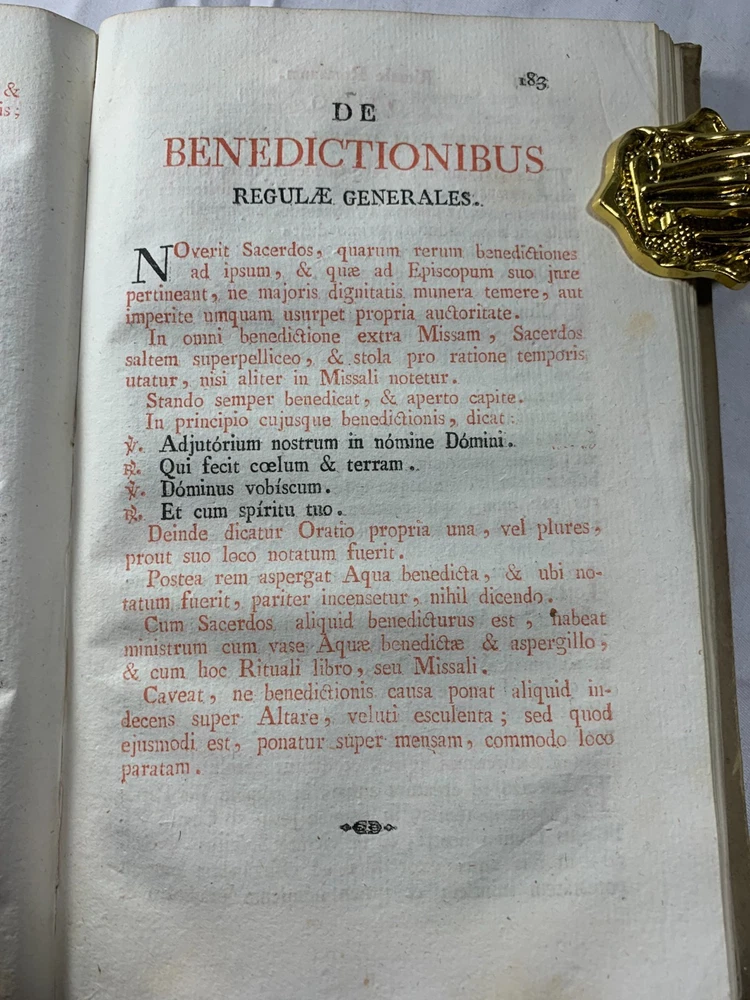 &
is;
183
DE
BENEDICTIONIBUS
REGULÆ GENERALES.
NOverit Sacerdos, quarum rerum benedictiones
ad ipsum, & quæ ad Episcopum suo jure
pertineant, ne majoris dignitatis munera temere, aut
imperite umquam usurpet propria auctoritate.
In omni benedictione extra Missam, Sacerdos
saltem superpelliceo, & stola pro ratione temporis
utatur, nisi aliter in Missali notetur.
Stando semper benedicat, & aperto capite.
In principio cujusque benedictionis, dicat:
℣. Adjutórium nostrum in nómine Dómini.
℟. Qui fecit cœlum & terram.
℣. Dóminus vobíscum.
℟. Et cum spíritu tuo.
Deinde dicatur Oratio propria una, vel plures,
prout suo loco notatum fuerit.
Postea rem aspergat Aqua benedicta, & ubi no-
tatum fuerit, pariter incensetur, nihil dicendo.
Cum Sacerdos aliquid benedicturus est, habeat
ministrum cum vase Aquæ benedictæ & aspergillo,
& cum hoc Rituali libro, seu Missali.
Caveat, ne benedictionis causa ponat aliquid in-
decens super Altare, veluti esculenta; sed quod
ejusmodi est, ponatur super mensam, commodo loco
paratam.